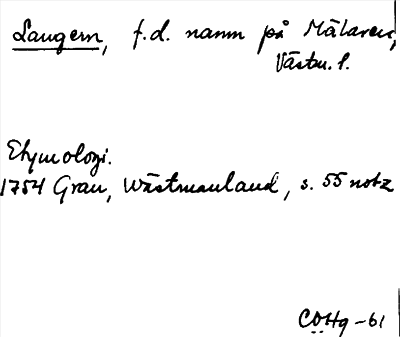 Laugern, f.d. namn på Mälaren,
Västm. l.
Etymologi.
1754 Grau, Wästmanland, s. 55 not z
CÖHg -61